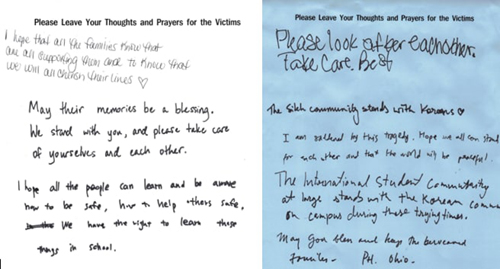 Please Leave Your Thoughts and Prayers for the Victims
I hope that all the families know that
are all supporting them and to know that
we will all cherish their lives ♡
May their memories be a blessing.
We stand with you, and please take care
of yourselves and each other.
I hope all the people can learn and be aware
how to be safe, how to help others safe.
We have the right to learn these
things in school.
Please Leave Your Thoughts and Prayers for the Victims
Please look after eachother.
Take Care. Best
The Sikh community stands with Koreans ♡
I am saddened by this tragedy. Hope we all can stand
for each other and that the world will be peaceful.
The International Student Community
at large stands with the Korean comm
on campus during these trying times.
May God bless and keep the bereaved
families - Ohio.